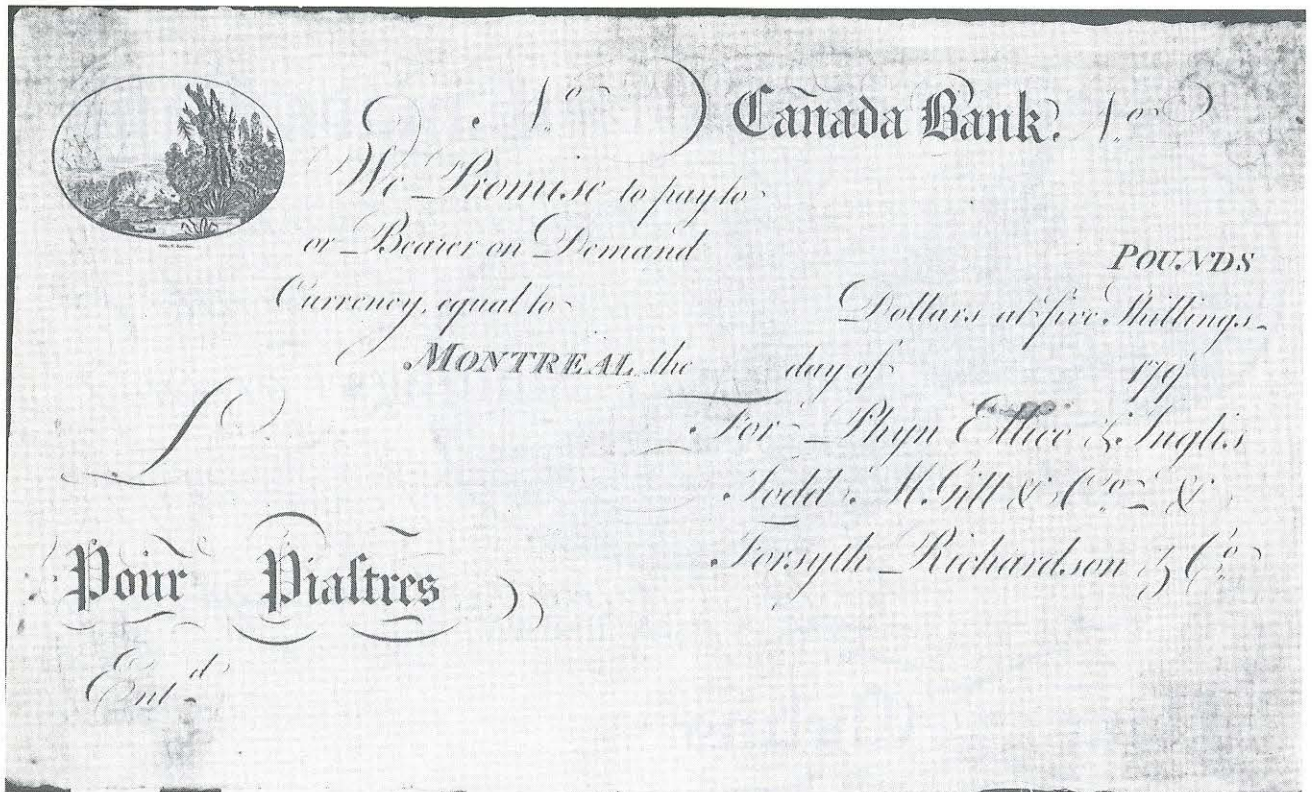 No Canada Bank. No
We Promise to pay to
or Bearer on Demand
POUNDS
Currency, equal to Dollars at five Shillings
MONTREAL the day of 179
£ For Phyn Ellice & Inglis
Todd, McGill & Co. &
Forsyth Richardson & Co.
Pour Piastres
Entd